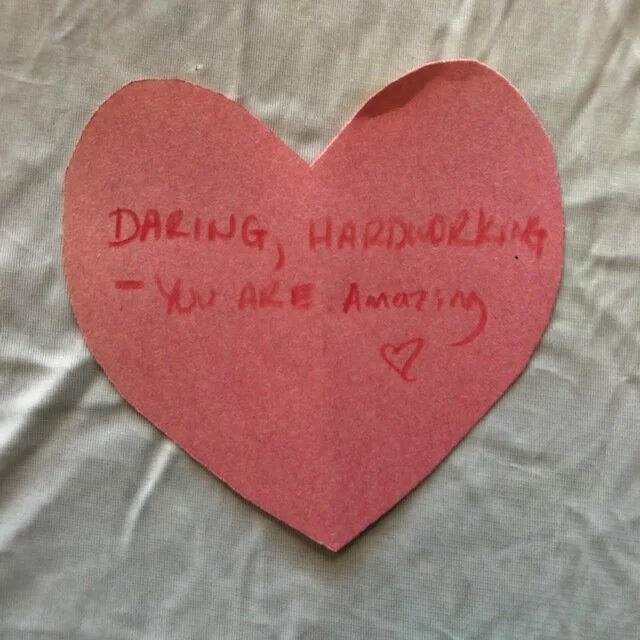 DARING, HARDWORKING
- YOU ARE Amazing